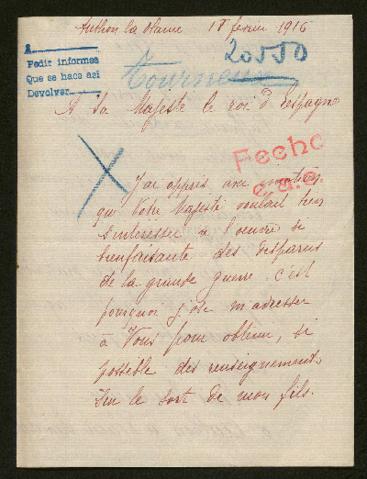 Authon la Plaine 18 février 1916
A
Pedir informes
Que se haga asi
Devolver
20550
Tourneur
A Sa Majesté le roi d'espagne
Fecho
J'ai appris avec
que Votre Majesté voulait bien
s'interesser à l'œuvre si
bienfaisante des disparus
de la grande guerre c'est
pourquoi j'ose m'adresser
à Vous pour obtenir, si
possible des renseignements
sur le sort de mon fils.